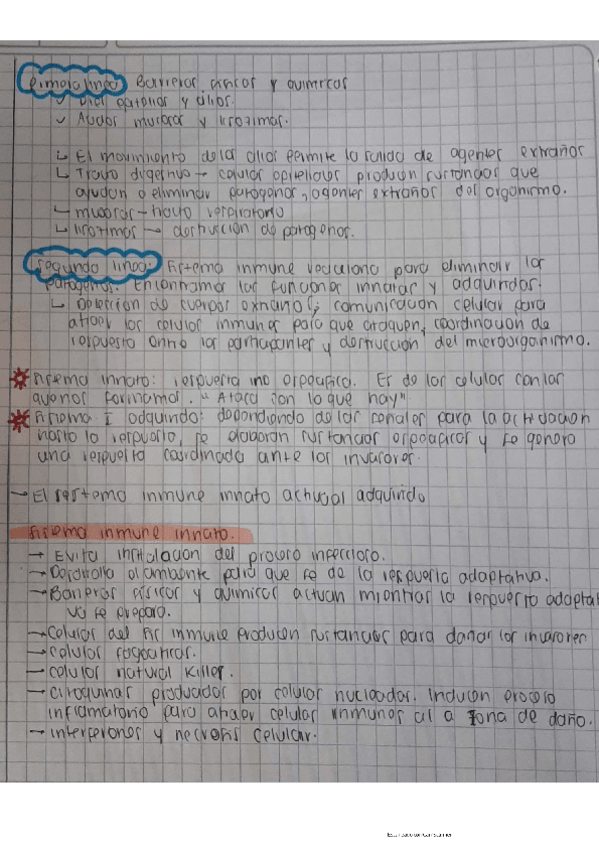 Primera linea: Barreras físicas y químicas
✓ Vías aéreas y cilios.
✓ Ácidos mucosas y lisozimas.
↳ El movimiento de los cilios permite la salida de agentes extraños
↳ Tracto digestivo → celulas epiteliales producen sustancias que
ayudan a eliminar patogenos, agentes extraños del organismo.
↳ mucosas → tracto respiratorio
↳ lisozimas → destruccion de patogenos.
Segunda linea: Sistema inmune evoluciona para eliminar los
patogenos. Encontramos las funciones innatas y adquiridas.
↳ Detección de cuerpos extraños, comunicación celular para
atraer las celulas inmunes para que ataquen, coordinacion de
respuesta entre los participantes y destrucción del microorganismo.
Sistema innato: respuesta no especifica. Es de las celulas con las
que nos formamos. "Ataca con lo que hay"
Sistema I adquirido: dependiendo de las señales para la activacion
hasta la respuesta, se elaboran sustancias especificas y se genera
una respuesta coordinada ante los invasores.
→ El sistema inmune innato activa al adquirido
Sistema inmune innato.
→ Evita instalacion del proceso infeccioso.
→ Desarrolla el ambiente para que se de la respuesta adaptativa.
→ Barreras físicas y quimicas actuan mientras la respuesta adapta
va se prepara.
→ Celulas del sis inmune producen sustancias para dañar los invasores
→ celulas fagociticas.
→ celulas natural killer.
→ citoquinas producidas por celulas nucleadas. Inducen proceso
inflamatorio para atraer celulas inmunes al a zona de daño.
→ interferones y necrosis celular.